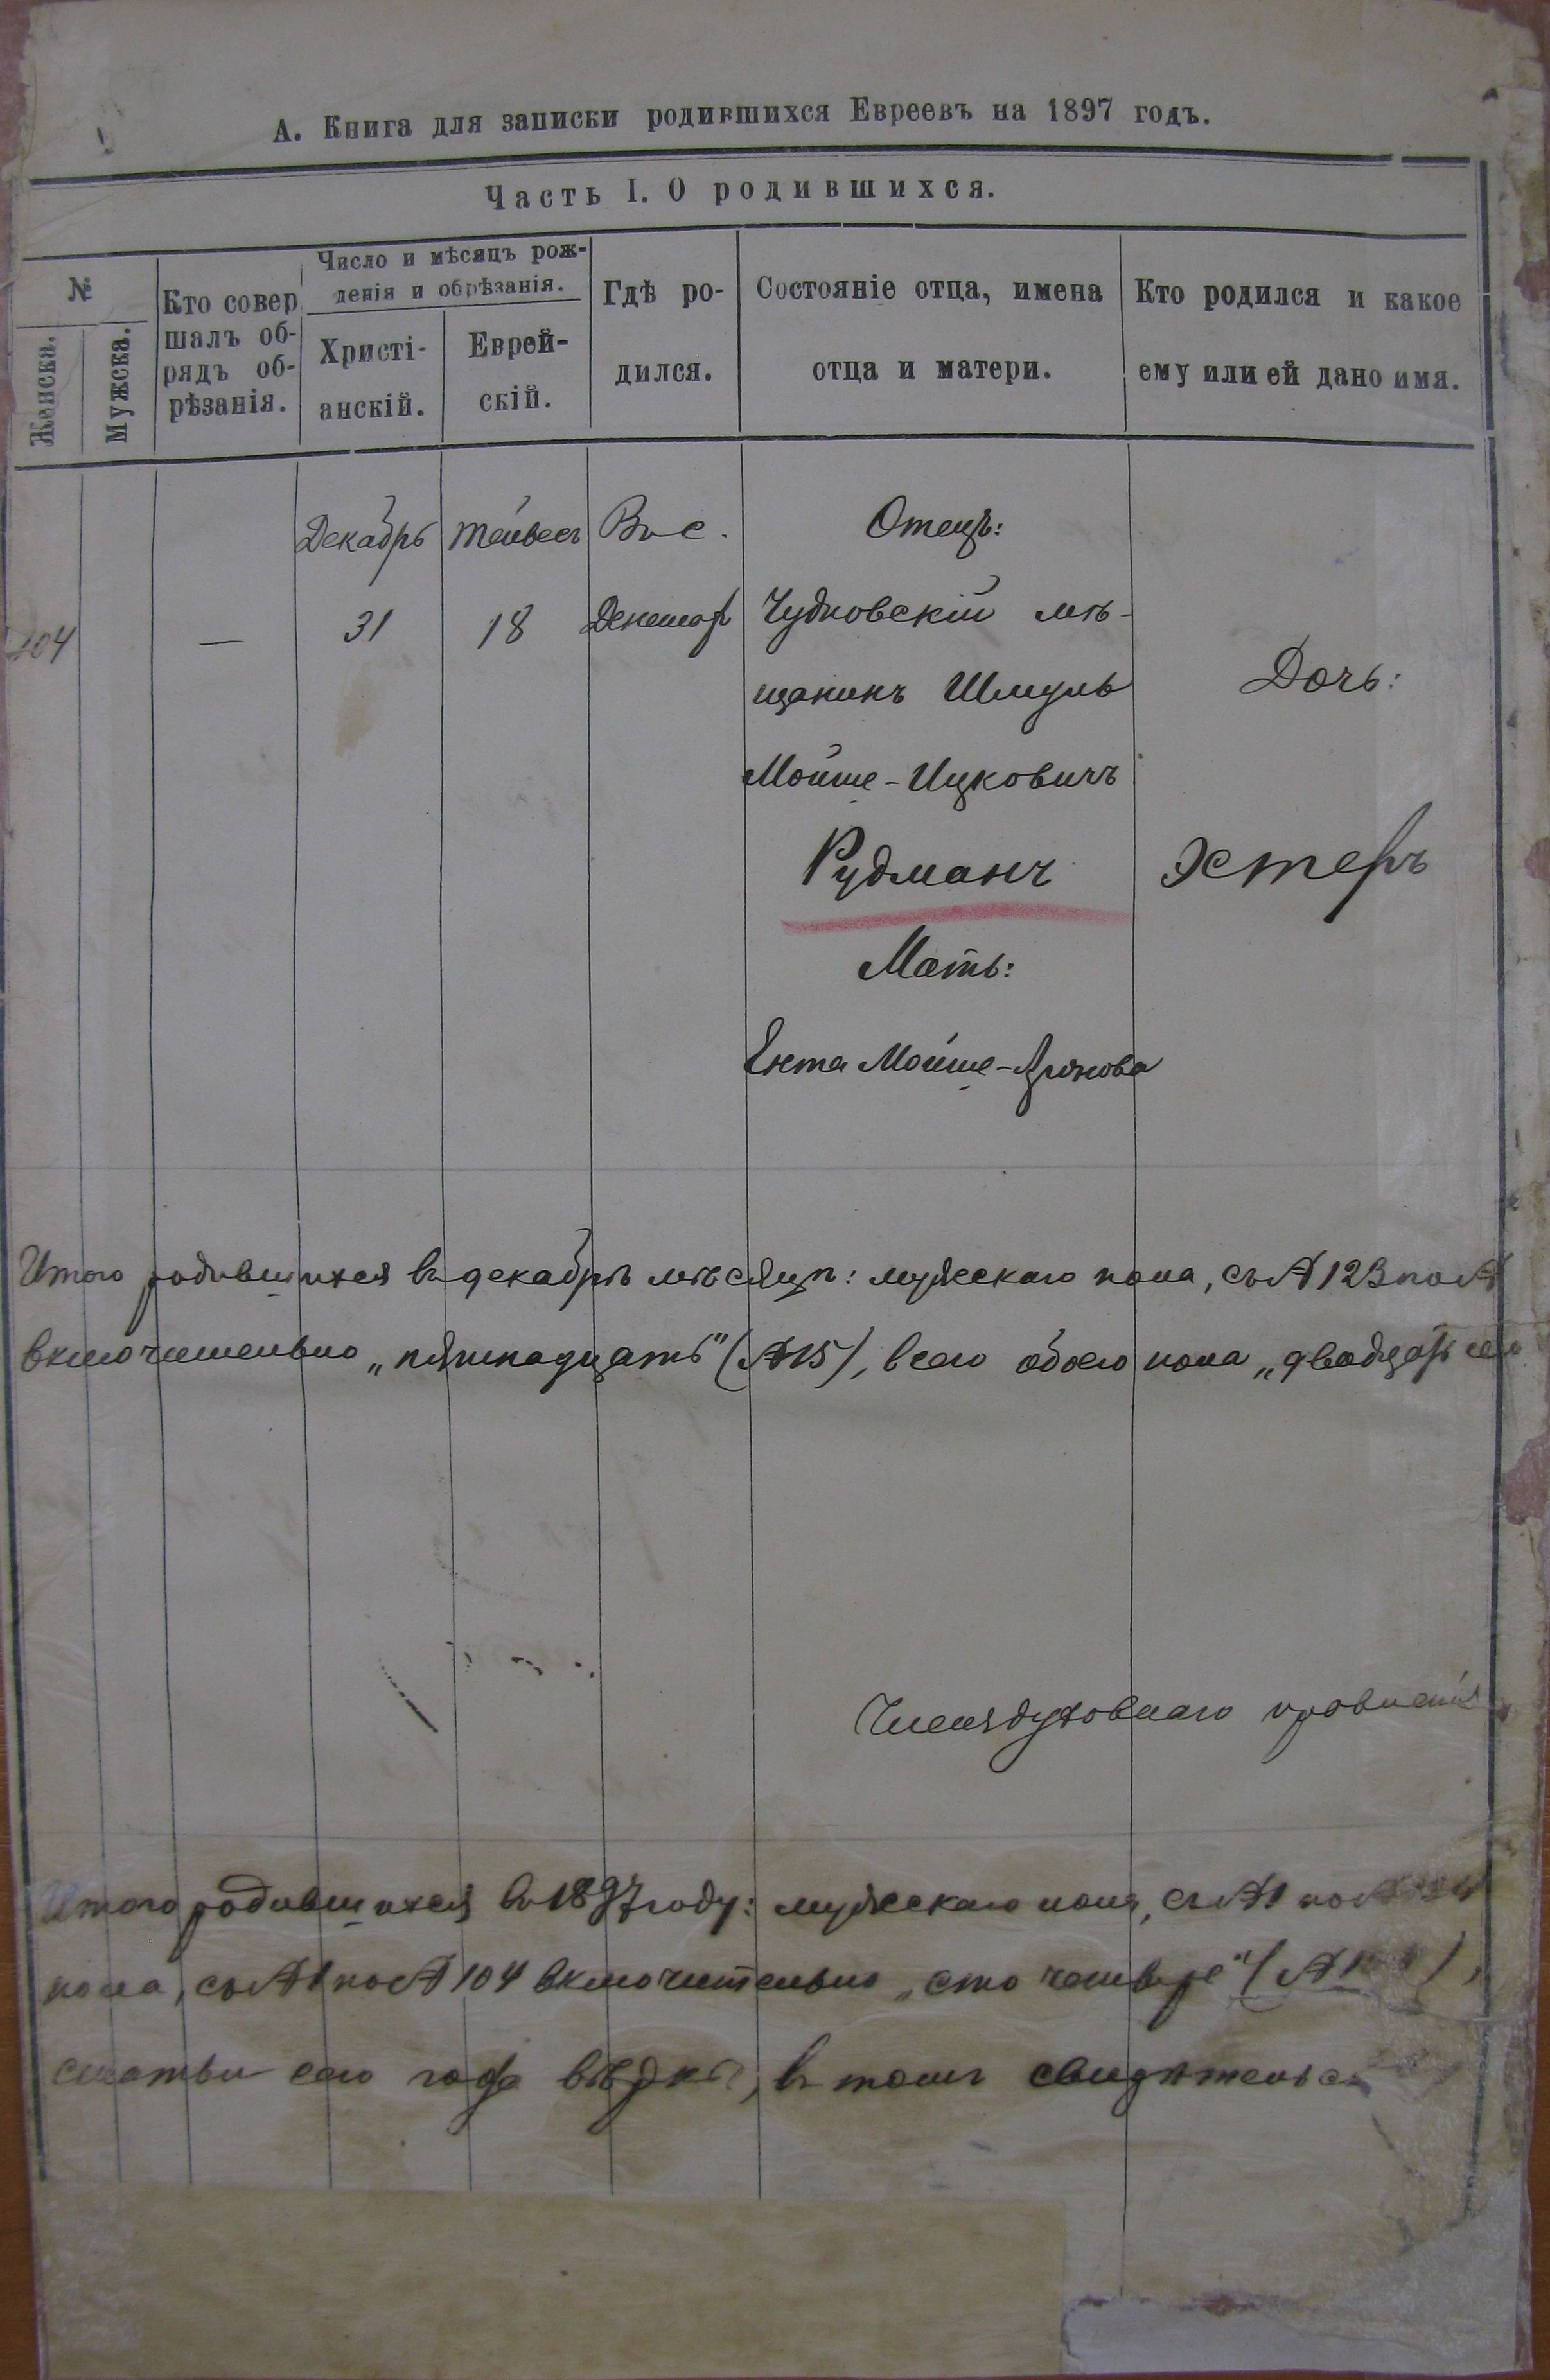 А. Книга для записки родившихся Евреевъ на 1897 годъ.
Часть I. О родившихся.
№
Женска.
Мужска.
Кто совер
шалъ об-
рядъ об-
рѣзанія.
Число и мѣсяцъ рож-
денія и обрѣзанія.
Христі-
анскій.
Еврей-
скій.
Гдѣ ро-
дился.
Состояніе отца, имена
отца и матери.
Кто родился и какое
ему или ей дано имя.
104
—
Декабрь
31
Тейвесъ
18
Въ с.
Отецъ:
Чудновскій мѣ-
щанинъ Шмуль
Мойше-Ицковичъ
Рудманъ
Мать:
Ента Мойше-Аронова
Дочь:
Эстеръ
Итого родившихся въ декабрѣ мѣсяцѣ: мужескаго пола, съ № 123 по №
включительно „пятнадцать" (№ 15), всего обоего пола „двадцать
Члены духовнаго правленія
Итого родившихся въ 1897 году: мужескаго пола, съ № 1 по №
пола, съ № 1 по № 104 включительно „сто четыре" (№
статьи сего года вѣрны, въ томъ